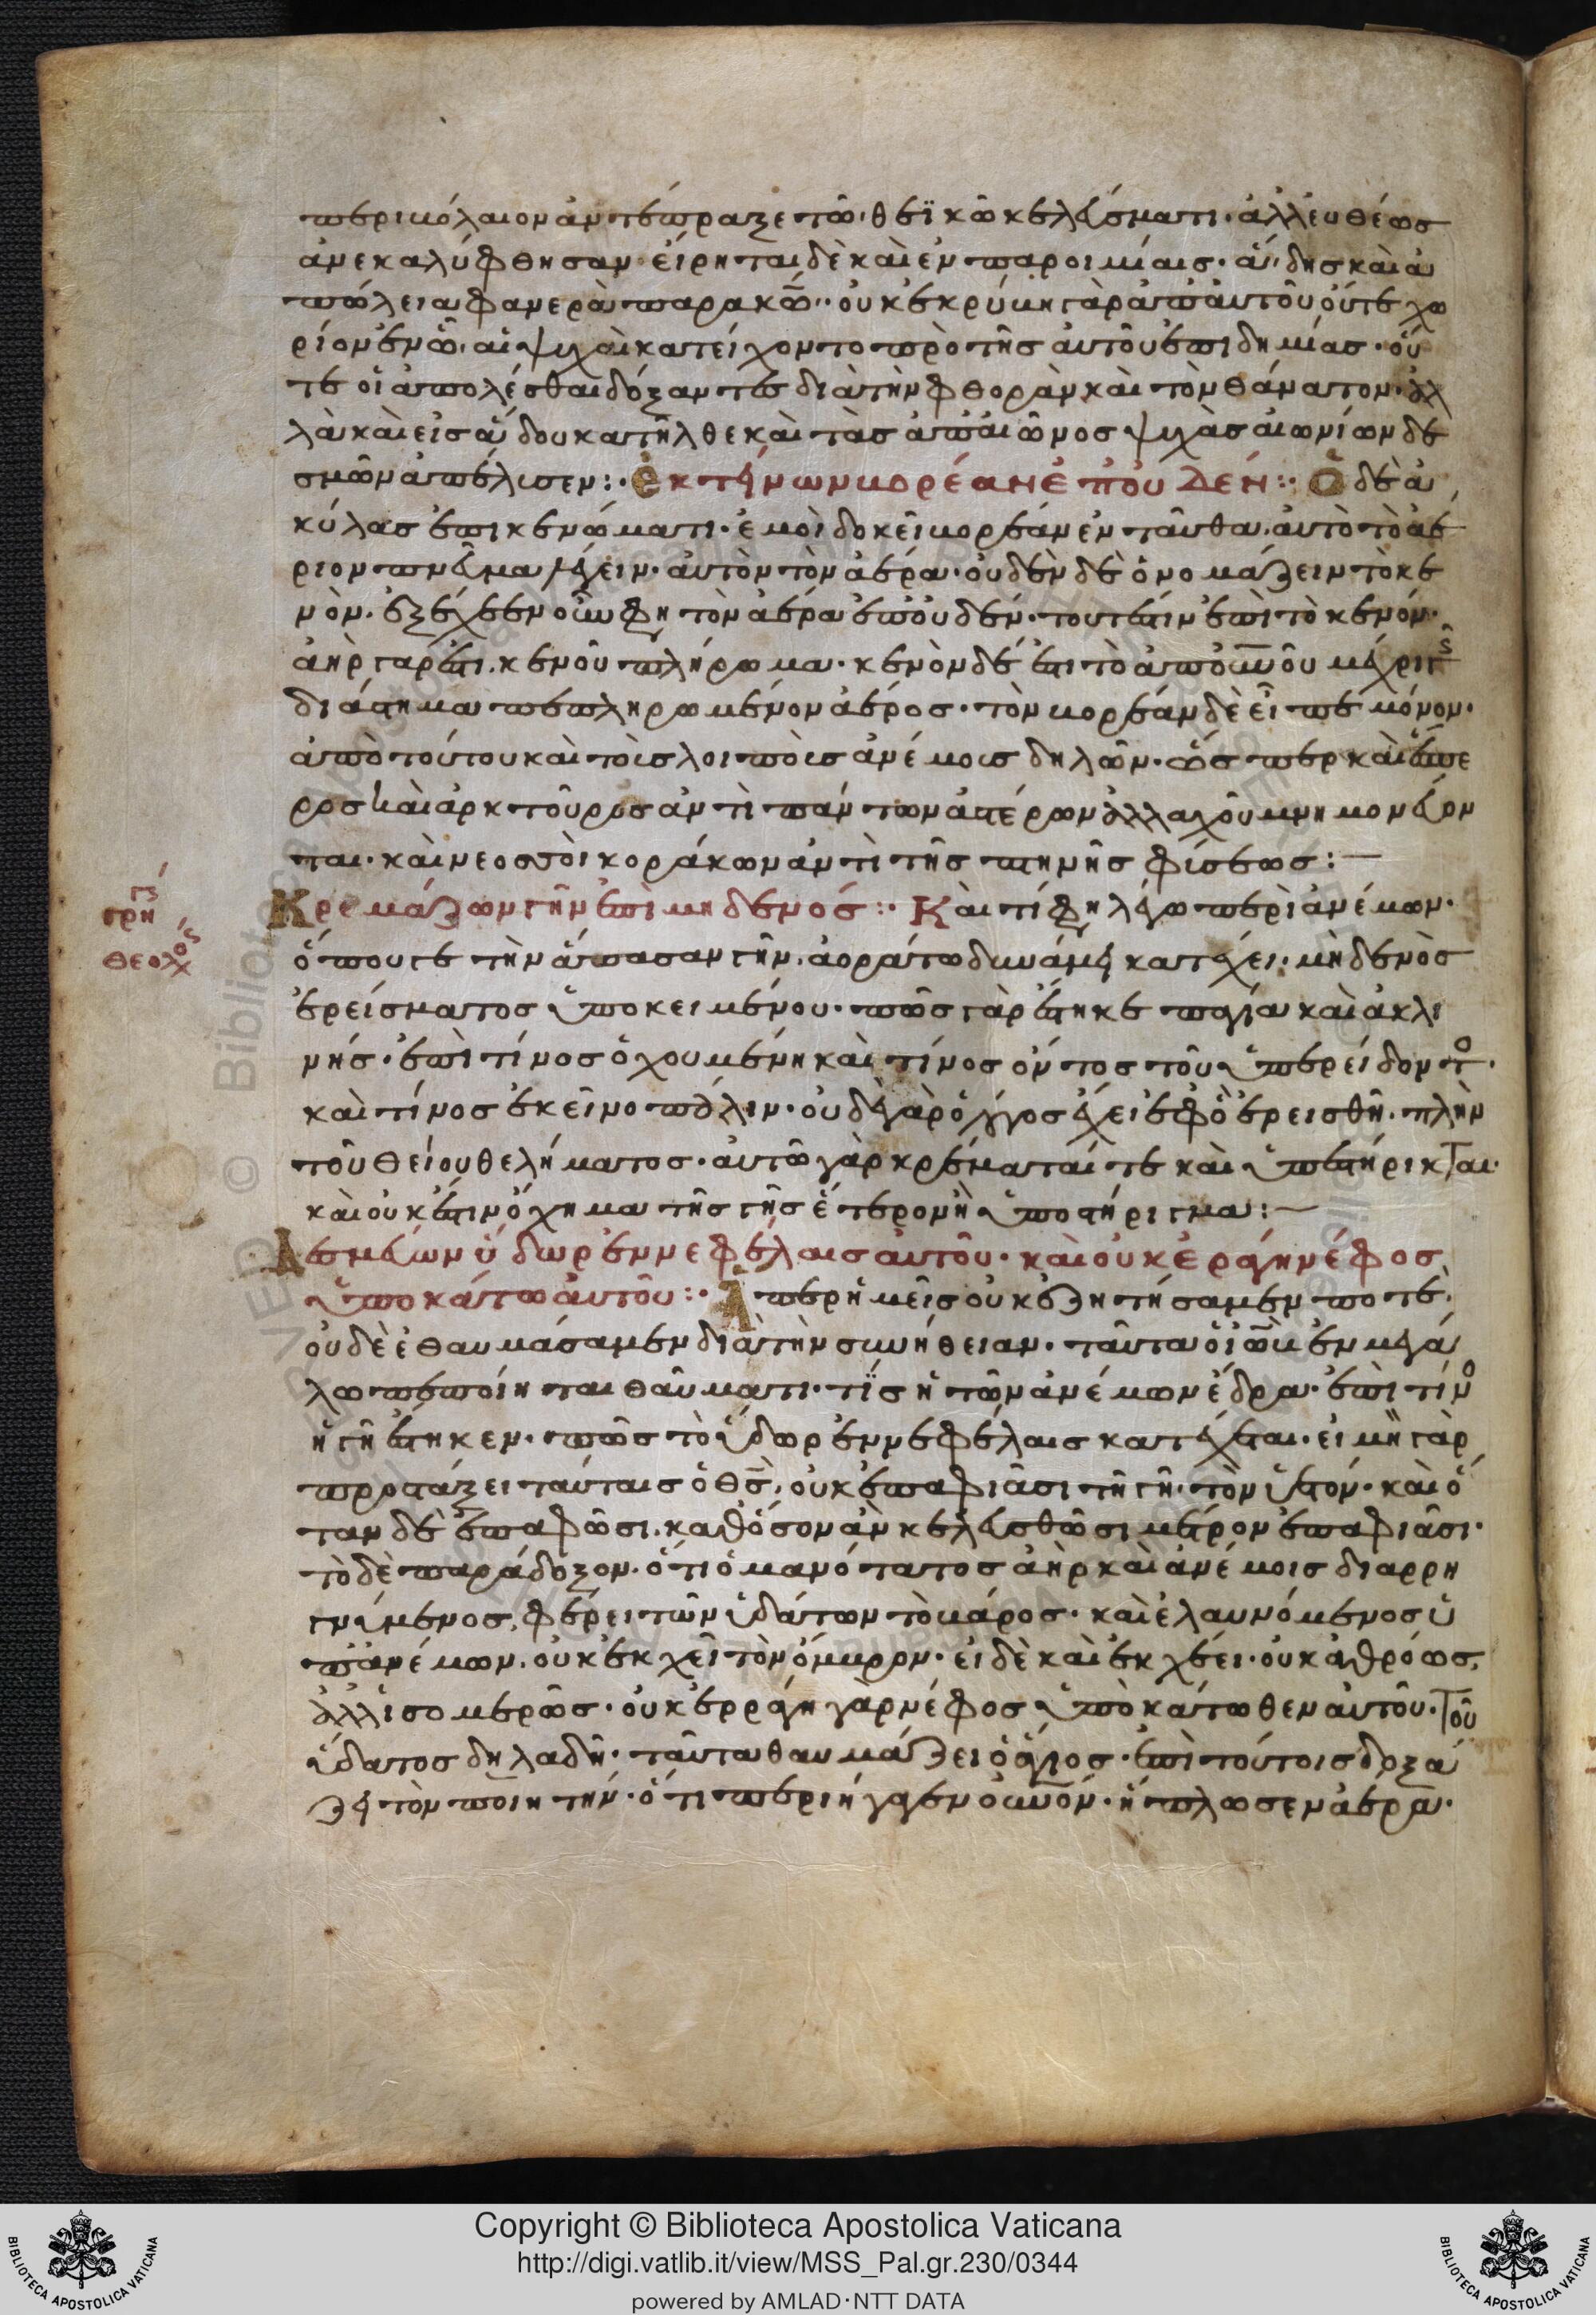 περιβόλαιον ἀντέπραξε τῶ θεϊκῶ κελεύσματι. ἀλλ' εὐθέως
ἀνεκαλύφθησαν· εἴρηται δὲ καὶ ἐν παροιμίαις. ἅδης καὶ ἀ
πώλεια φανερὰ παρὰ κω̅. οὐκ ἐκρύβη γὰρ ἀπ' αὐτοῦ οὔτε χω
ρίον ἐν ὧ αἱ ψυχαὶ κατείχοντο πρὸ τῆς αὐτοῦ ἐπιδημίας. οὔ
τε οἱ ἀπολέσθαι δόξαντες διὰ τὴν φθορὰν καὶ τὸν θάνατον. ἀλ
λὰ καὶ εἰς ἅδου κατῆλθε καὶ τὰς ἀπ' αἰῶνος ψυχὰς αἰωνίων δε
σμῶν ἀπέλυσεν:· Ἐκτείνων βορέαν ἐπ' οὐδέν:· Ὁ δὲ ἀ
κύλας ἐπὶ κενώματι. ἐμοὶ δοκεῖ βορρᾶν ἐνταῦθα. αὐτὸ τὸ ἀέ
ριον πνεῦμα λέγειν. αὐτὸν τὸν ἀέρα. οὐδὲν δὲ ὀνομάζειν τὸ κε
νόν. ἐξέχεεν οὖν φη τὸν ἀέρα ἐπ' οὐδέν. τουτέστιν ἐπὶ τὸ κενόν.
ἀὴρ γάρ ἐστι κενοῦ πλήρωμα. κενὸν δέ ἐστι τὸ ἀπὸ οὐνοῦ μέχρι γῆς
διάστημα πεπληρωμένον ἀέρος. τὸν βορρᾶν δὲ εἶπε μόνον.
ἀπὸ τούτου καὶ τοῖς λοιποῖς ἀνέμοις δηλῶν. ὥσπερ καὶ ἕσπε
ρος καὶ ἀρκτοῦρος ἀντὶ πάντων ἀστέρων ἀλλαχοῦ μνημονεύον
ται. καὶ νεοσσοὶ κοράκων ἀντὶ τῆς πτηνῆς φύσεως:—
Κρεμάζων γῆν ἐπὶ μηδενός:· Καὶ τί φη λέγω περὶ ἀνέμων.
ὅπου γε τὴν ἅπασαν γῆν. ἀοράτω δυνάμει κατέχει. μηδενὸς
ἐρείσματος ὑποκειμένου. πῶς γὰρ ἕστηκε παγία καὶ ἀκλι
νής. ἐπὶ τίνος ὀχουμένη καὶ τίνος ὄντος τοῦ ὑπερείδοντος.
καὶ τίνος ἐκεῖνο πάλιν. οὐδὲ γὰρ ὁ λόγος ἔχει ἐφ' ὃ ἐρεισθῆ. πλὴν
τοῦ θείου θελήματος. αὐτῶ γὰρ κρέματαί τε καὶ ὑπεστήρικται.
καὶ οὐκ ἔστιν ὄχημα τῆς γῆς ἕτερον ἢ ὑποστήριγμα:—
Δεσμεύων ὕδωρ ἐν νεφέλαις αὐτοῦ. καὶ οὐκ ἐράγη νέφος
ὑποκάτω αὐτοῦ:· Ἅπερ ἡμεῖς οὐκ ἐζητήσαμεν ποτὲ.
οὐδὲ ἐθαυμάσαμεν διὰ τὴν συνήθειαν. ταῦτα ὁ ἰὼβ ἐν μεγά
λω πεποίηται θαύματι. τίς ἡ τῶν ἀνέμων ἕδρα. ἐπὶ τίνος
ἡ γῆ ἕστηκεν. πῶς τὸ ὕδωρ ἐν νεφέλαις κατέχεται. εἰ μὴ γὰρ
προστάξει ταύταις ὁ θς̅, οὐκ ἐπαφιᾶσι τῆ γῆ τὸν ὑετόν. καὶ ὅ
ταν δὲ ἐπαφῶσι. καθ' ὅσον ἂν κελευσθῶσι μέτρον ἐπαφιᾶσι.
τὸ δὲ παράδοξον. ὅτι ὁ μανότατος ἀὴρ καὶ ἀνέμοις διαρρη
γνύμενος, φέρει τῶν ὑδάτων τὸ βάρος. καὶ ἐλαυνόμενος ὑ
π' ἀνέμων. οὐκ ἐκχεῖ τὸν ὄμβρον. εἰ δὲ καὶ ἐκχέει. οὐκ ἀθρόως,
ἀλλ' ἰσομέρως. οὐκ ἐρράγη γὰρ νέφος ὑποκάτωθεν αὐτοῦ. τοῦ
ὕδατος δηλαδή. ταῦτα θαυμάζει ὁ ἅγιος. ἐπὶ τούτοις δοξά
ζει τὸν ποιητήν. ὅτι περιήγαγεν οὐνόν. ἥπλωσεν ἀέρα.
γρη
θεολο
Copyright © Biblioteca Apostolica Vaticana
http://digi.vatlib.it/view/MSS_Pal.gr.230/0344
powered by AMLAD·NTT DATA
BIBLIOTECA APOSTOLICA VATICANA
BIBLIOTECA APOSTOLICA VATICANA